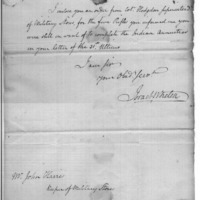 I enclose you an order from Col. Hodgdon Superintendent
of Military Stores for the four Rifles you informed me you
were still in want of to complete the Indian Annuities
in your letter of the 21st Ultimo
I am Sir
your Obed Servt
Israel Whelen
Mr. John Harris
Keeper of Military Stores